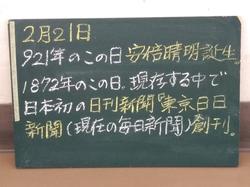 2月21日
921年のこの日安倍晴明誕生。
1872年のこの日。現在する中で
日本初の日刊新聞『東京日日
新聞(現在の毎日新聞)創刊。